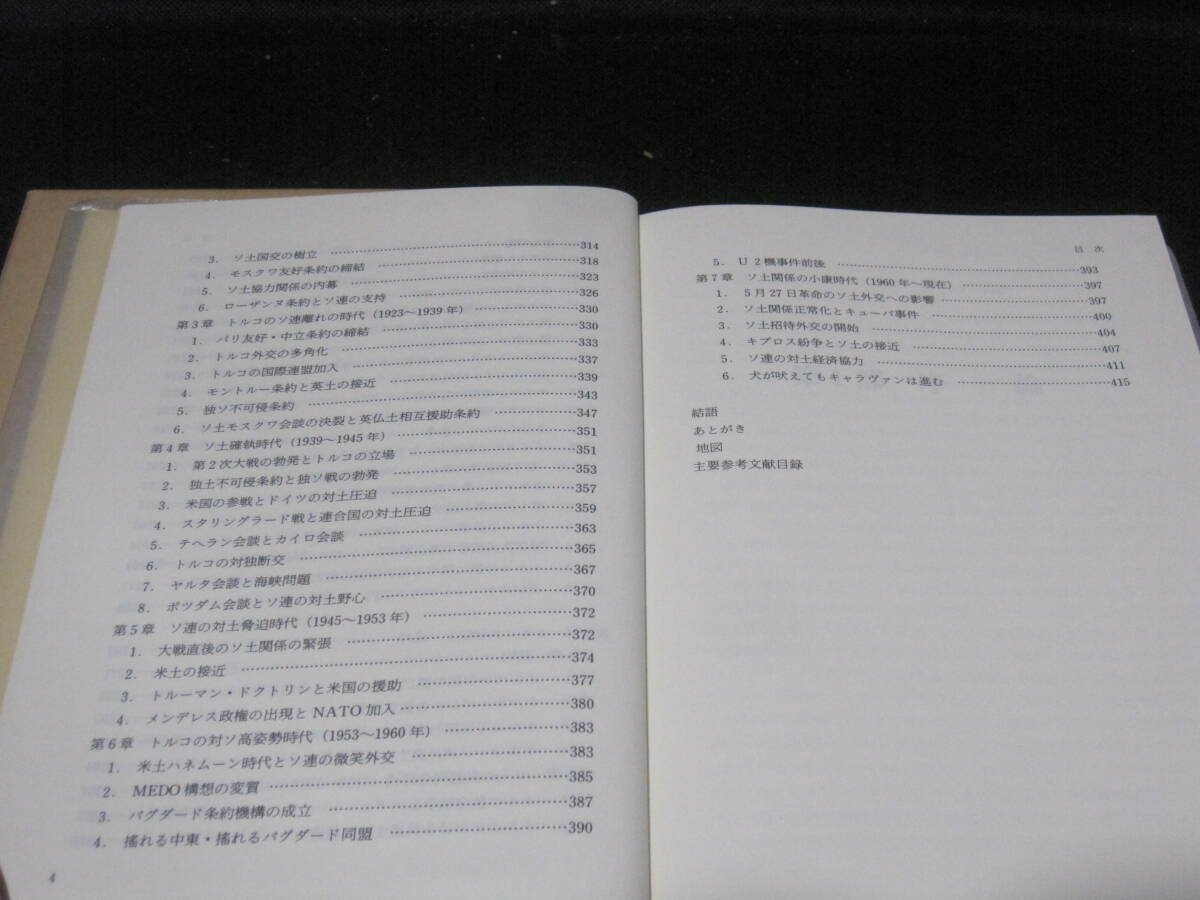 3. ソ土国交の樹立 ……314
4. モスクワ友好条約の締結 ……318
5. ソ土協力関係の内幕 ……323
6. ローザンヌ条約とソ連の支持 ……326
第3章 トルコのソ連離れの時代（1923〜1939年） ……330
1. パリ友好・中立条約の締結 ……330
2. トルコ外交の多角化 ……333
3. トルコの国際連盟加入 ……337
4. モントルー条約と英土の接近 ……339
5. 独ソ不可侵条約 ……343
6. ソ土モスクワ会談の決裂と英仏土相互援助条約 ……347
第4章 ソ土確執時代（1939〜1945年） ……351
1. 第2次大戦の勃発とトルコの立場 ……351
2. 独土不可侵条約と独ソ戦の勃発 ……353
3. 米国の参戦とドイツの対土圧迫 ……357
4. スタリングラード戦と連合国の対土圧迫 ……359
5. テヘラン会談とカイロ会談 ……363
6. トルコの対独断交 ……365
7. ヤルタ会談と海峡問題 ……367
8. ポツダム会談とソ連の対土野心 ……370
第5章 ソ連の対土脅迫時代（1945〜1953年） ……372
1. 大戦直後のソ土関係の緊張 ……372
2. 米土の接近 ……374
3. トルーマン・ドクトリンと米国の援助 ……377
4. メンデレス政権の出現とNATO加入 ……380
第6章 トルコの対ソ高姿勢時代（1953〜1960年） ……383
1. 米土ハネムーン時代とソ連の微笑外交 ……383
2. MEDO構想の変質 ……385
3. バグダード条約機構の成立 ……387
4. 搖れる中東・搖れるバグダード同盟 ……390
4
目 次
5. U2機事件前後 ……393
第7章 ソ土関係の小康時代（1960年〜現在） ……397
1. 5月27日革命のソ土外交への影響 ……397
2. ソ土関係正常化とキューバ事件 ……400
3. ソ土招待外交の開始 ……404
4. キプロス紛争とソ土の接近 ……407
5. ソ連の対土経済協力 ……411
6. 犬が吠えてもキャラヴァンは進む ……415
結語
あとがき
地図
主要参考文献目録